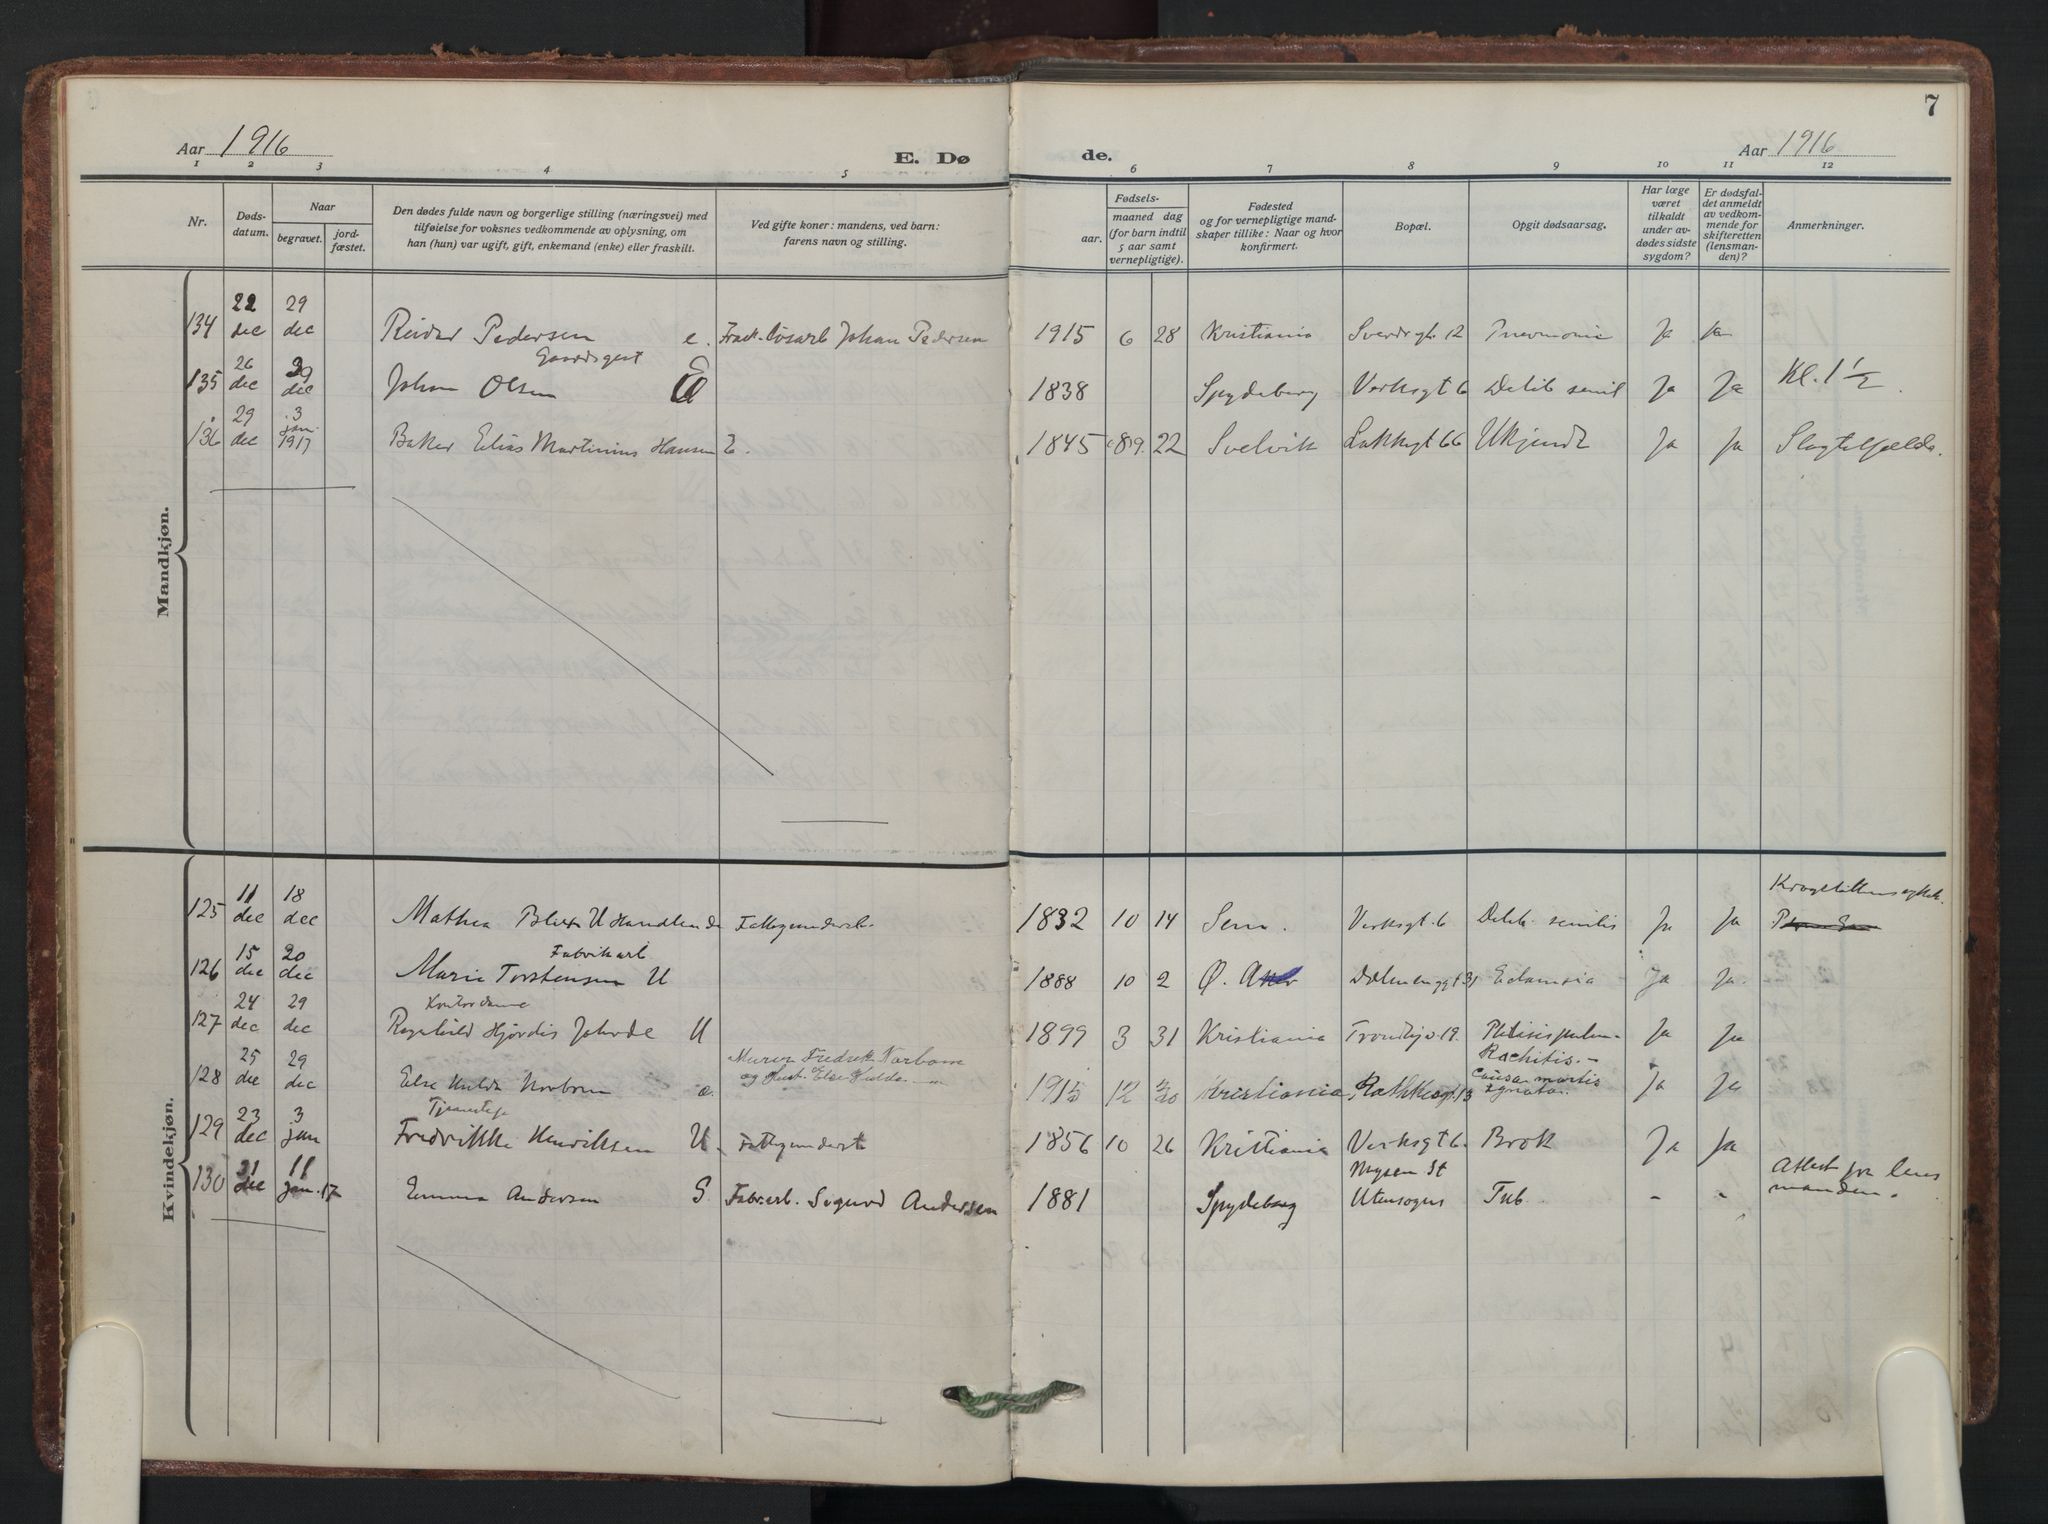 7
Aar 1916
E. Dø
de.
Aar 1916
1 2 3 4 5 6 7 8 9 10 11 12
Nr.
Døds-
datum.
Naar
begravet.
jord-
fæstet.
Den dødes fulde navn og borgerlige stilling (næringsvei) med
tilføielse for voksnes vedkommende av oplysning, om
han (hun) var ugift, gift, enkemand (enke) eller fraskilt.
Ved gifte koner: mandens, ved barn:
farens navn og stilling.
Fødsels-
aar.
maaned dag
(for barn indtil
5 aar samt
vernepligtige).
Fødested
og for vernepligtige mand-
skaper tillike: Naar og hvor
konfirmert.
Bopæl.
Opgit dødsaarsag.
Har læge
været
tilkaldt
under av-
dødes sidste
sygdom?
Er dødsfal-
det anmeldt
av vedkom-
mende for
skifteretten
(lensman-
den)?
Anmerkninger.
Mandkjøn.
134 22 dec 29 dec Reidar Pedersen e. Johan Pedersen 1915 6 28 Kristiania Sverdrsgt. 12 Pneumonie Ja Ja
Gaardsgut
135 26 dec 29 dec Johan Olsen E 1838 Spydeberg Verksgt 6 Debil. senil Ja Ja Kl. 1 1/2
136 29 dec 3 jan. 1917 Baker Elias Martinius Hansen E. 1845 22 Svelvik Lakkegt 66 Ukjendt Ja Ja
Kvindekjøn.
125 11 dec 18 dec Mathea Blix U Handlende Fattigunderst. 1832 10 14 Verksgt. 6 Debil. senilis Ja Ja
Fabrikarb
126 15 dec 20 dec Marie Torstensen U 1888 10 2 Ø. Aker 31 Eclamsia Ja Ja.
Kontordame
127 24 dec 29 dec Ragnhild Hjørdis U 1899 3 31 Kristiania Trondhjv. 19. Phtisis pulm. Ja Ja
Murer Fredrik Norbom
og Hust. Else Hulda
Rachitis.
128 25 dec 29 dec Else Hulda Norbom e. 1915 12 Kristiania Rathkesgt. 13 Causa mortis ignota. Ja Ja
129 23 dec 3 jan Fredrikke Henriksen U. Fattigunderst 1856 10 26 Kristiania Verksgt 6. Brok Ja Ja
Mysen St
130 31 dec 11 jan. 17 Emma Andersen G. Fabr.arb. Sigurd Andersen 1881 Spydeberg Tub. - - Attest fra lens
manden.